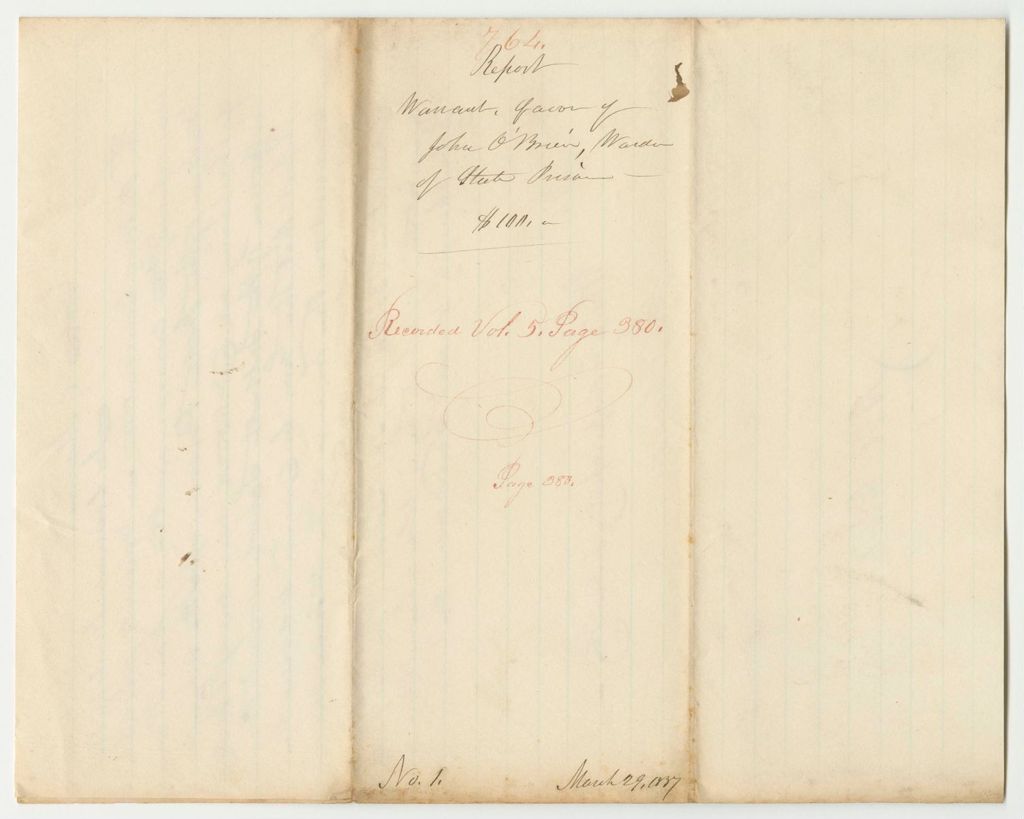 764.
Report
Warrant, favor of
John O'Brien, Warden
of State Prison —
$100. —
Recorded Vol. 5. Page 380.
Page 388.
No. 1.
March 29, 1837